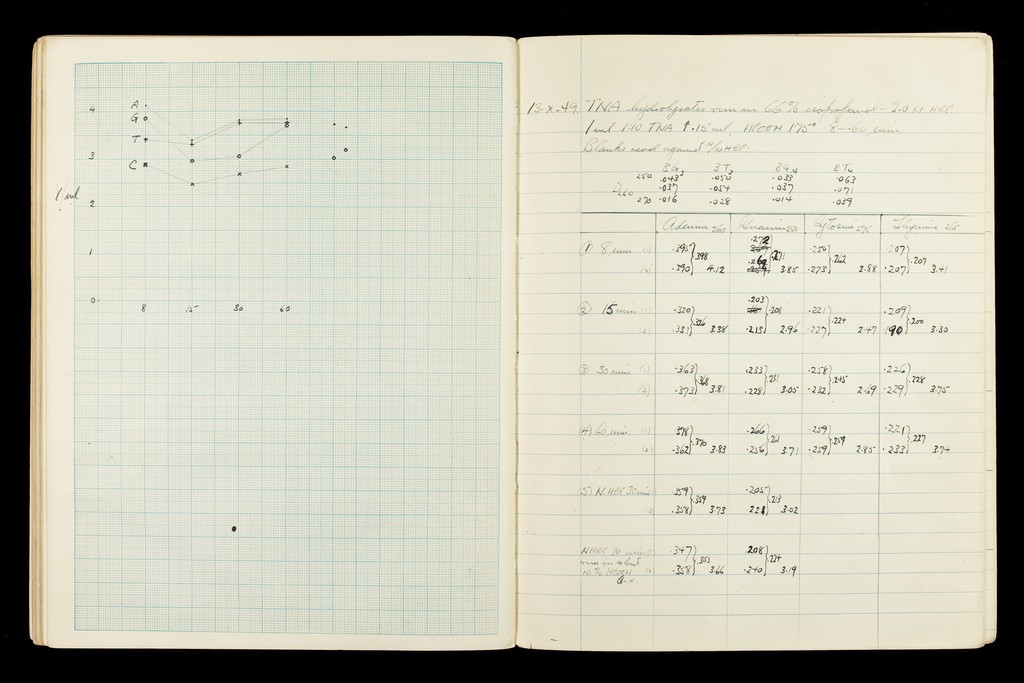 A
G
T
C
4
3
2
1
0
8 15 30 60
13-X-49. TNA hydrolysates run in 66% isopropanol - 2.0 N HCl
1 ml 1:10 TNA .15 ml, HCOOH 175° 8-60 min
Blanks read against N/10 HCl
BG3 BT3 BG4 BT4
250 .043 .050 .033 .063
260 .037 .054 .037 .071
270 .016 .028 .014 .039
Adenine 260 Guanine 250 Cytosine 275 Thymine 265
① 8 min (1) .395 .272 .250 .207
.398 .271 .262 .207
(2) .390 4.12 3.85 .273 2.88 .207 3.41
② 15 min (1) .320 .203 .221 .209
.326 .208 .224 .200
(2) .331 3.38 .213 2.96 .227 2.47 .190 3.30
③ 30 min (1) .363 .233 .258 .226
.368 .231 .245 .228
(2) .373 3.81 .228 3.05 .232 2.69 .229 3.75
(4) 60 min (1) .378 .266 .259 .221
.370 .261 .259 .227
(2) .362 3.83 .256 3.71 .259 2.85 .233 3.74
(5) N HCl 30 min .359 .205
.359 .213
.358 3.73 .221 3.02
NHCl 30 min .347 .208
run in
.353 .224
10% HCOOH (2) .358 3.66 .240 3.19